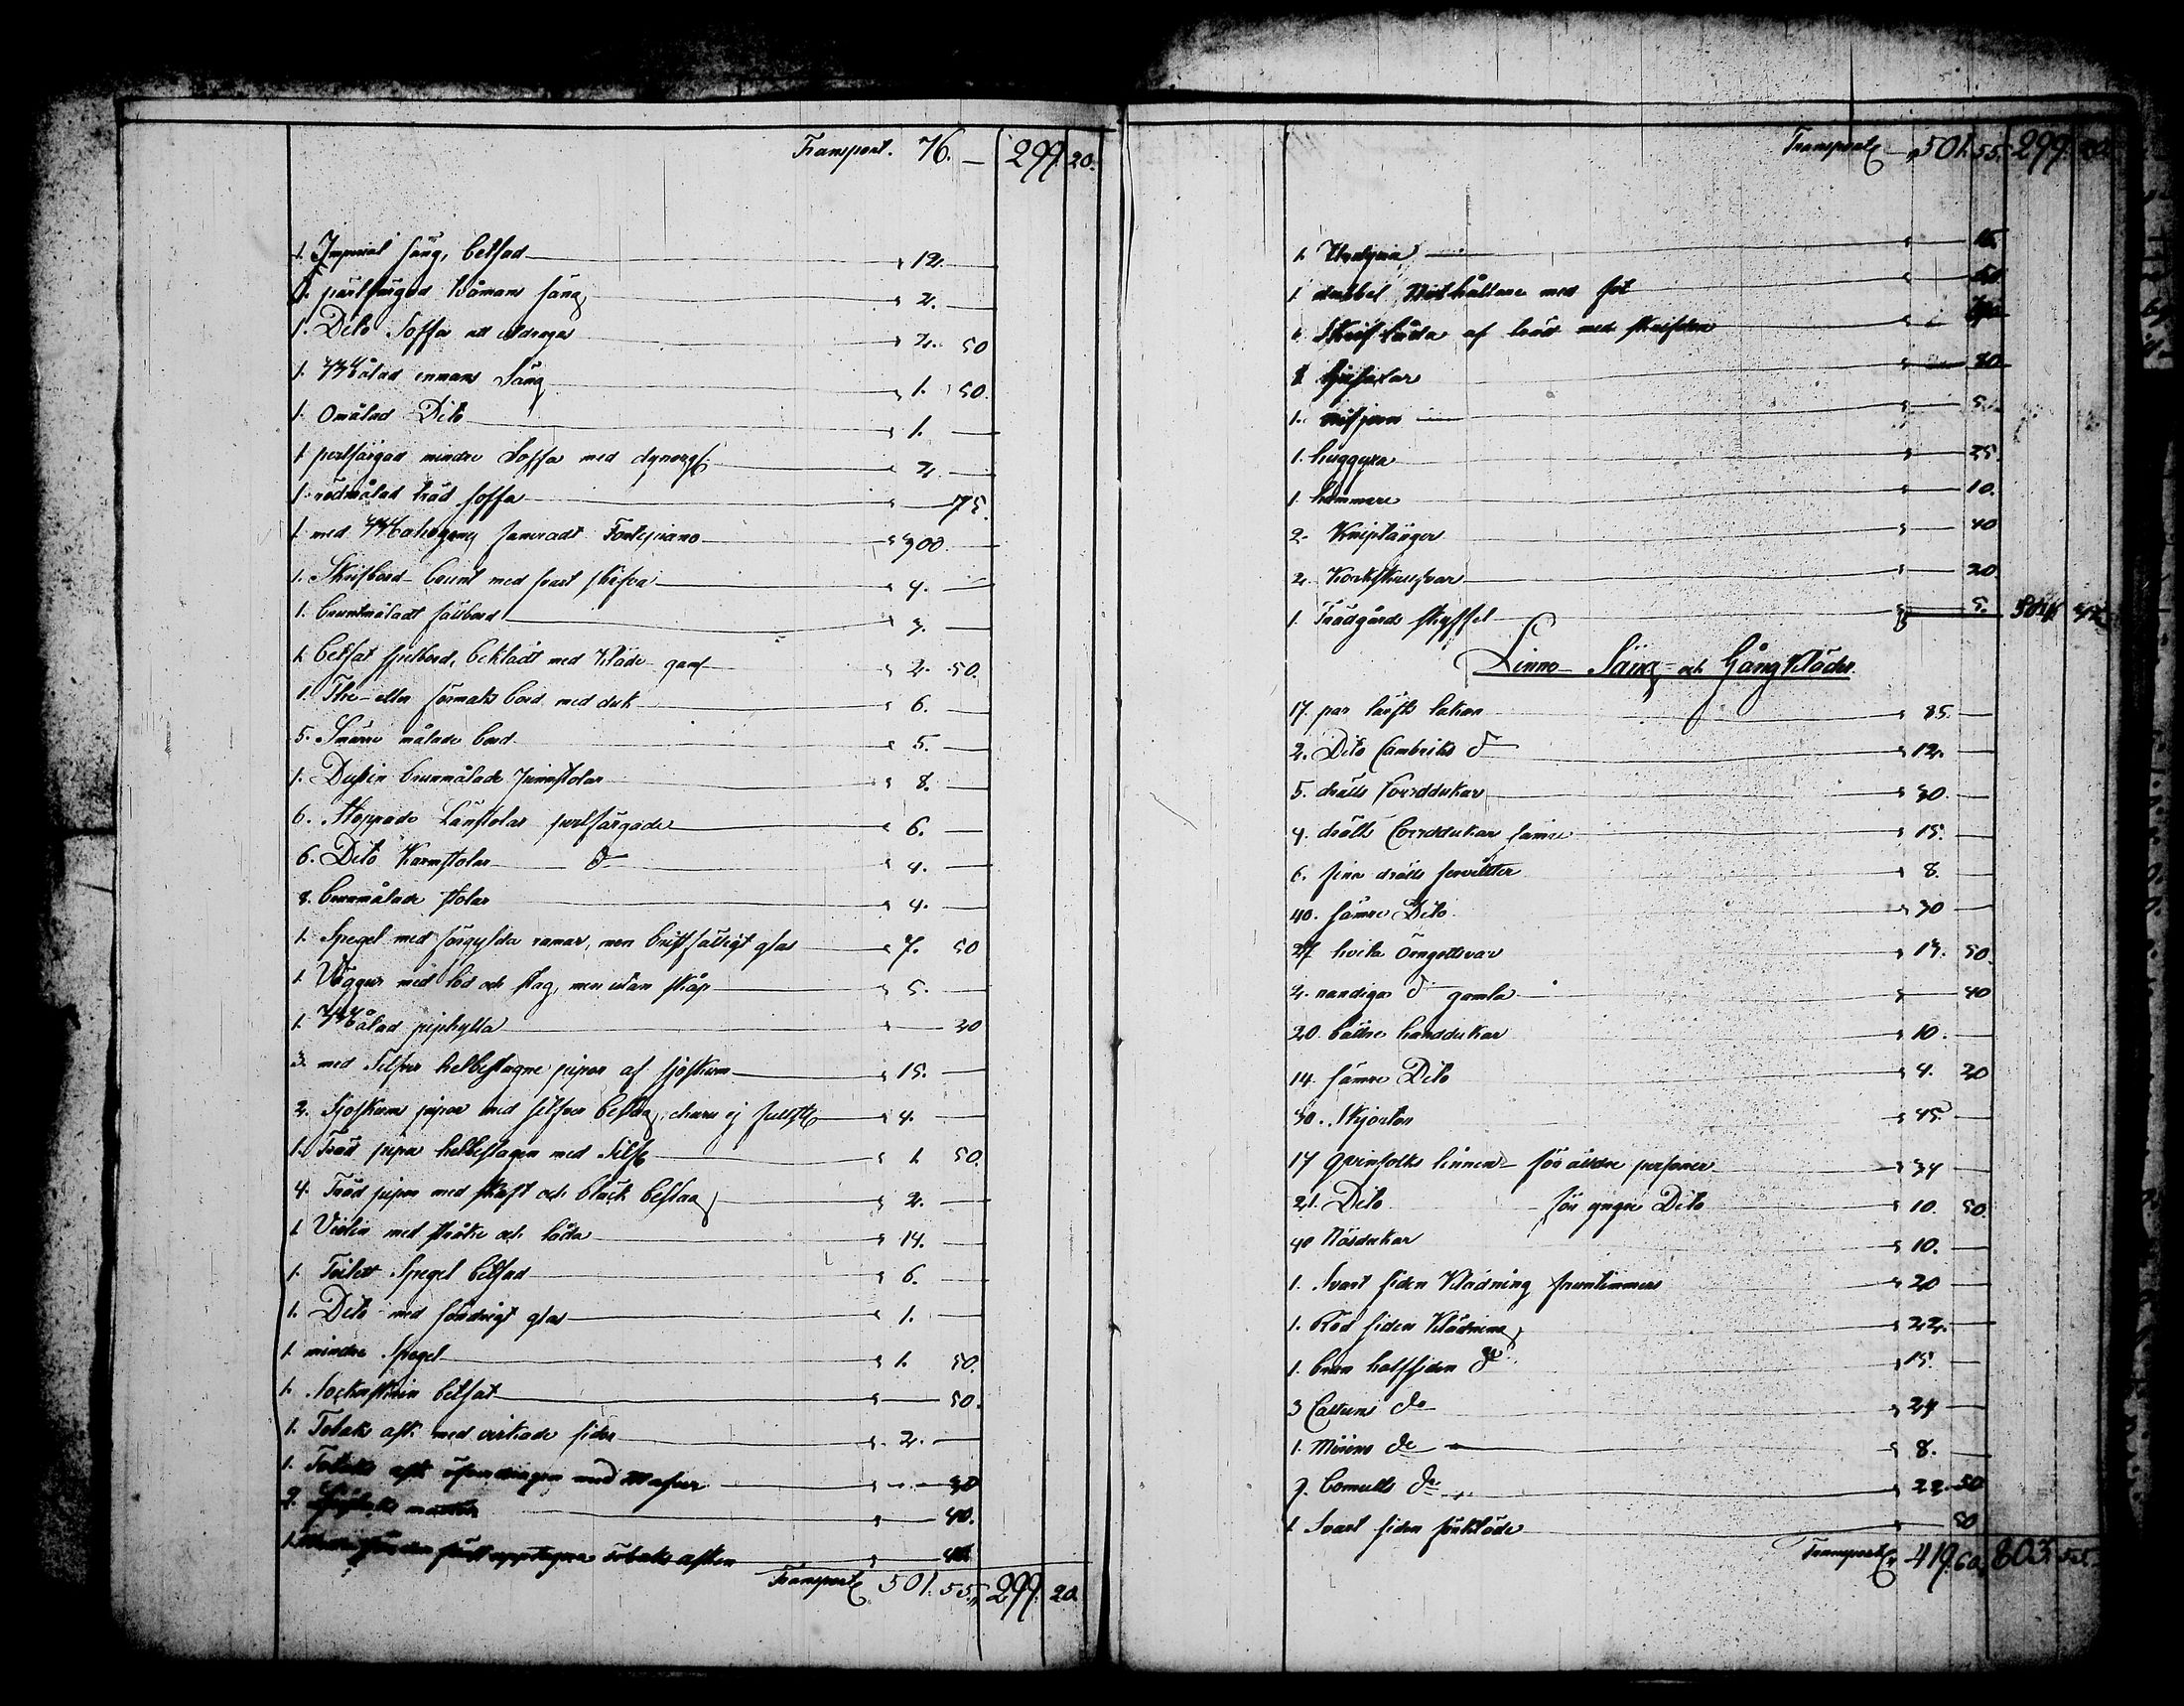 Transport. 76. — 299 20.
1. Imperial säng, betsad — " 12. —
1. pärlfärgad tvåmans säng — " 2. —
1. Dito Soffa att utdragas — " 2. 50
1. Målad enmans Säng — " 1. 50.
1. Omålad Dito — " 1. —
1 perlfärgad mindre Soffa med dynor — " 2. —
1. rödmålad träd soffa — " — 75.
1 med Mahogany faneradt Fortepiano — " 300. —
1. Skrifbord brunt med svart skifva — " 4. —
1. brunmåladt fällbord — " 3. —
1. betsat spelbord, beklädt med kläde gam — " 2. 50.
1. The- eller förmaks bord med duk — " 6. —
5. Smärre målade bord — " 5. —
1. Dussin brunmålade pinnstolar — " 8. —
6. Stoppade Länstolar perlfärgade — " 6. —
6. Dito Karmstolar — d:o — " 4. —
8. brunmålade stolar — " 4. —
1. Spegel med förgylda ramar, men bristfälligt glas — " 7. 50
1 Väggur med lod och slag, men utan skåp — " 5. —
1. Målad piphylla — " — 30
3. med Silfver helbeslagne pipor af sjöskum — " 15. —
2. Sjöskums pipor med silfver beslag, ehuru ej fullst. — " 4. —
1. Träd pipa helbeslagen med Silf. — " 1. 50.
4. Träd pipor med skaft och bläck beslag — " 2. —
1. Violin med stråke och låda — " 14. —
1. Toilett Spegel betsad — " 6. —
1. Dito med söndrigt glas — " 1. —
1. mindre Spegel — " 1. 50.
1. Sockerskrin betsat — " — 50.
1. Tobaks ask med virkade sidor — " 2. —
1. Tobaks ask öfverdragen med — " — 30
2. — " — 40.
1. Tobaks asken — "
Transport 501. 55. 299. 20.
Transport " 501. 55. 299. 20.
1. — " — 15.
1 dubbel med fot — "
1. låda af träd med — "
— "
1. — " — 5.
1. huggyxa — " — 25.
1. hammare — " — 10.
2. Kniptänger — " — 40
2. Korkskrufvar — " — 20.
1. Trädgårds skyffel — " — 5.
Linne- Säng- och Gång Kläder.
17. par lärfts lakan — " 85. —
2. Dito Cambriks d:o — " 12. —
5. drälls borddukar — " 30. —
4. drälls borddukar sämre — " 15. —
6. fina drälls servietter — " 8. —
40. sämre Dito — " 30 —
27 hvita örngottsvar — " 13. 50.
2. randiga d:o gamla — " — 40
20. bättre handdukar — " 10. —
14. sämre Dito — " 4. 20
30. Skjortor — " 45. —
17 qvinfolks linnen för äldre personer — " 34 —
21. Dito för yngre Dito — " 10. 50.
40 Näsdukar — " 10. —
1. Svart siden Klädning fruntimmers — " 20 —
1. Röd siden Klädning — " 22. —
1. brun halfsiden d:o — " 15. —
3 Cattuns d:o — " 24 —
1. Merino d:o — " 8. —
9. Bomulls d:o — " 22. 50
1 Svart siden förkläde — " — 50
Transport 419. 60. 803.